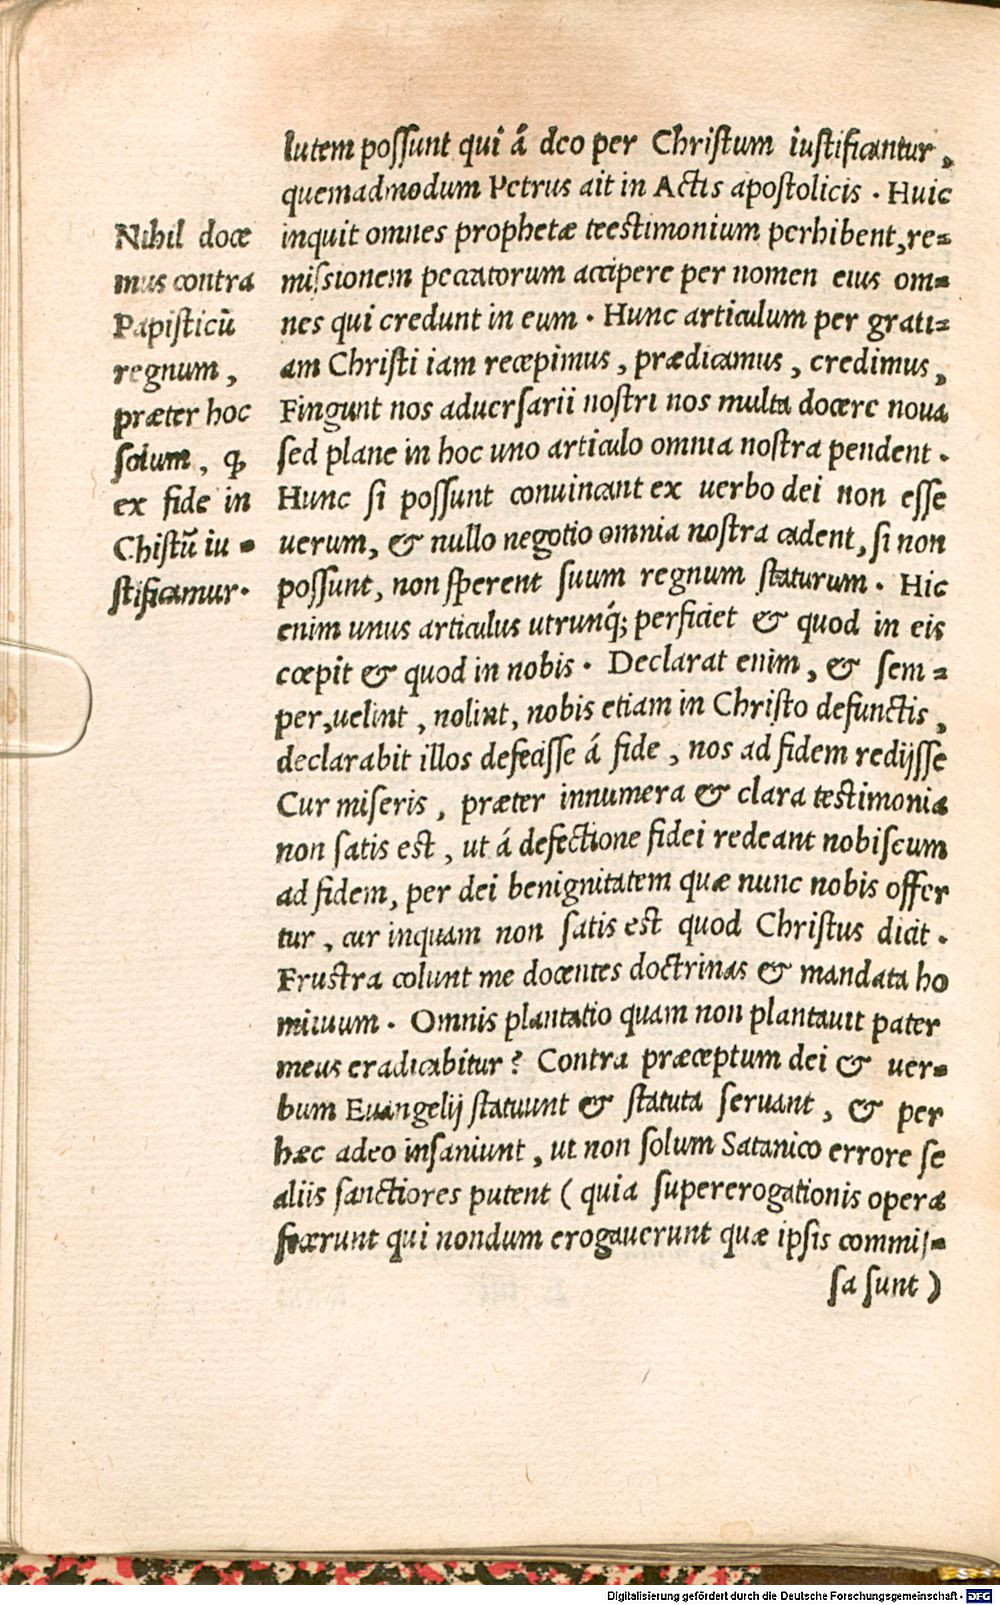 lutem possunt qui á deo per Christum iustificantur,
quemadmodum Petrus ait in Actis apostolicis . Huic
inquit omnes prophetæ teestimonium perhibent, re=
missionem peccatorum accipere per nomen eius om=
nes qui credunt in eum . Hunc articulum per grati=
am Christi iam recepimus, prædicamus, credimus,
Fingunt nos aduersarii nostri nos multa docere noua
sed plane in hoc uno articulo omnia nostra pendent .
Hunc si possunt conuincant ex uerbo dei non esse
uerum, & nullo negotio omnia nostra cadent, si non
possunt, non sperent suum regnum staturum . Hic
enim unus articulus utrunq́; perficiet & quod in eis
cœpit & quod in nobis . Declarat enim, & sem=
per, uelint, nolint, nobis etiam in Christo defunctis,
declarabit illos defecisse á fide, nos ad fidem redijsse
Cur miseris, præter innumera & clara testimonia
non satis est, ut á defectione fidei redeant nobiscum
ad fidem, per dei benignitatem quæ nunc nobis offer
tur, cur inquam non satis est quod Christus dicit .
Frustra colunt me docentes doctrinas & mandata ho
minum . Omnis plantatio quam non plantauit pater
meus eradicabitur? Contra præceptum dei & uer=
bum Euangelij statuunt & statuta seruant, & per
hæc adeo insaniunt, ut non solum Satanico errore se
aliis sanctiores putent (quia supererogationis opera
fecerunt qui nondum erogauerunt quæ ipsis commis=
sa sunt)
Nihil doce
mus contra
Papisticũ
regnum,
præter hoc
solum, ꝙ
ex fide in
Chistũ iu=
stificamur.
Digitalisierung gefördert durch die Deutsche Forschungsgemeinschaft - DFG